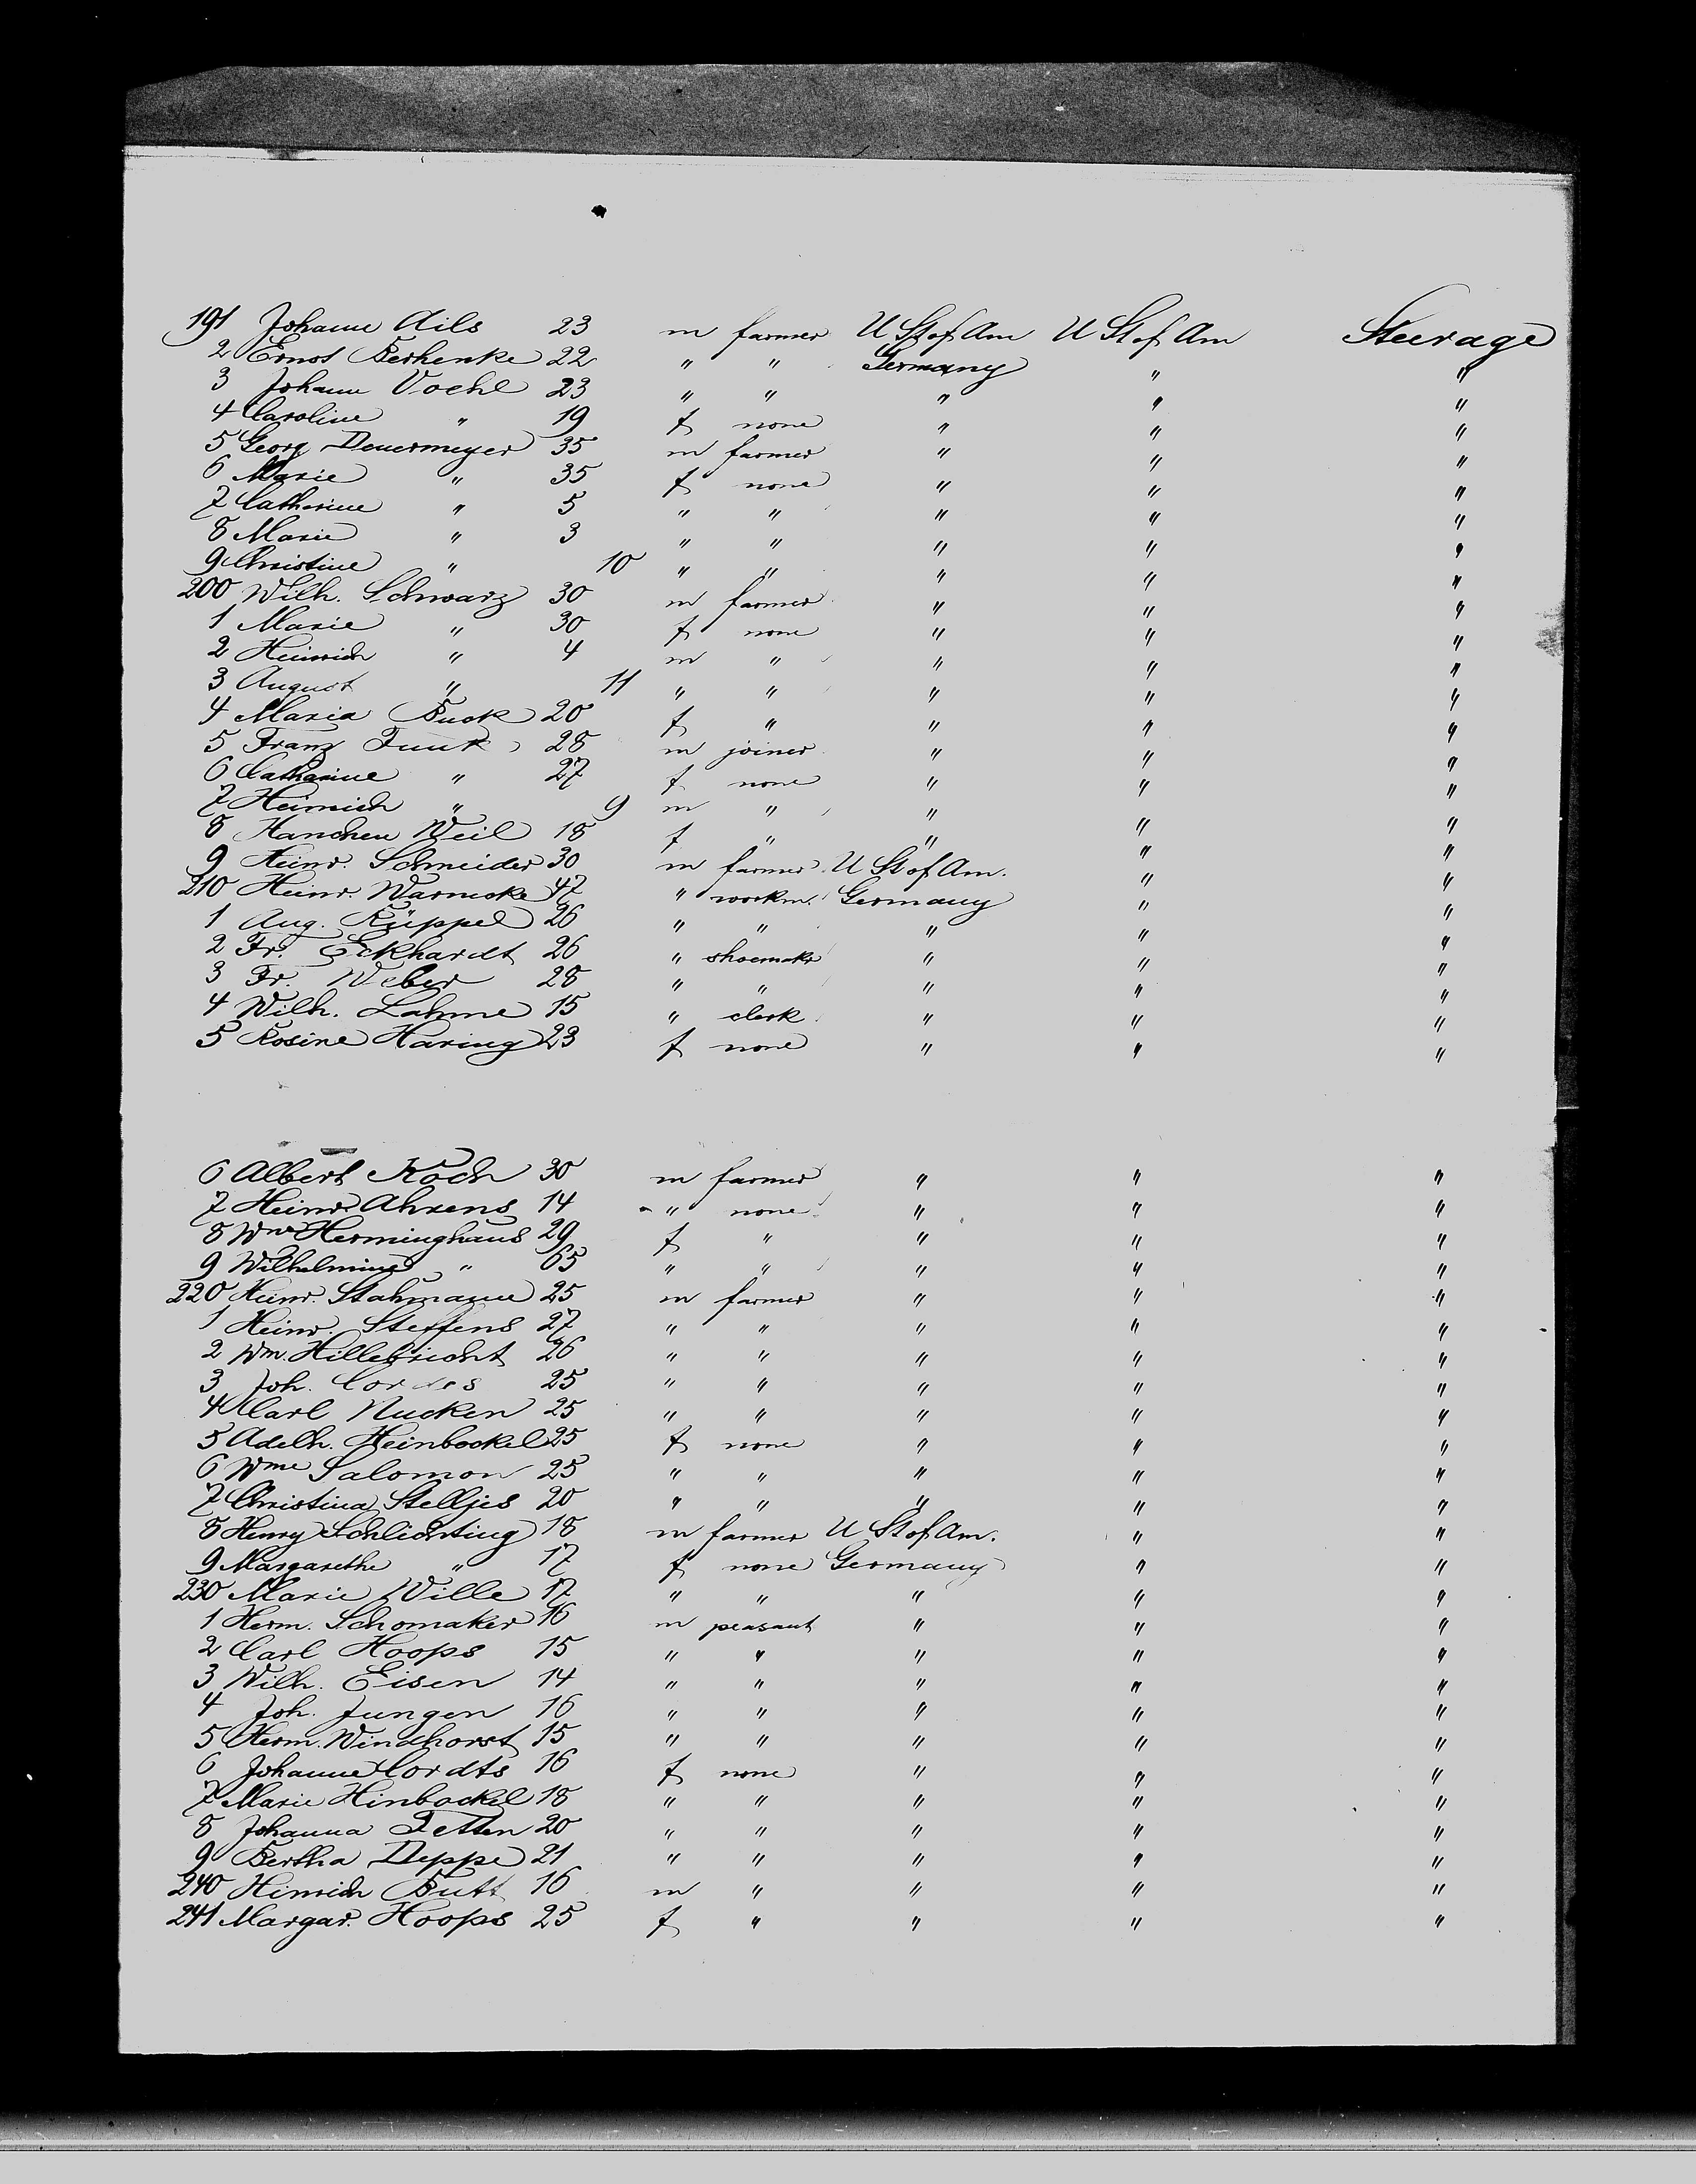 191 Johann Ails 23 m farmer U St of Am U St of Am Steerage
2 Ernst Berhenke 22 " " Germany " "
3 Johann Voehl 23 " " " " "
4 Caroline " 19 f none " " "
5 Georg Deuermeyer 35 m farmer " " "
6 Marie " 35 f none " " "
7 Catherine " 5 " " " " "
8 Marie " 3 " " " " "
9 Christine " 10 " " " " "
200 Wilh. Schwarz 30 m farmer " " "
1 Marie " 30 f none " " "
2 Heinrich " 4 m " " " "
3 August " 11 " " " " "
4 Maria Buck 20 f " " " "
5 Franz Funk 28 m joiner " " "
6 Catharine " 27 f none " " "
7 Heinrich " 9 m " " " "
8 Hanchen Weil 18 f " " " "
9 Heinr. Schneider 30 m farmer U St of Am. " "
210 Heinr. Warnicke 47 " workm. Germany " "
1 Aug. Rüppel 26 " " " " "
2 Fr. Eckhardt 26 " shoemakr " " "
3 Fr. Weber 28 " " " " "
4 Wilh. Lahme 15 " clerk " " "
5 Rosine Haring 23 f none " " "
6 Albert Koch 30 m farmer " " "
7 Heinr. Ahrens 14 " none " " "
8 Wme Herminghaus 29 f " " " "
9 Wilhelmine " 65 " " " " "
220 Heinr. Stahmann 25 m farmer " " "
1 Heinr. Steffens 27 " " " " "
2 Wm. Hillebricht 26 " " " " "
3 Joh. Cordes 25 " " " " "
4 Carl Nucken 25 " " " " "
5 Adelh. Heinbockel 25 f none " " "
6 Wme Salomon 25 " " " " "
7 Christina Stelljes 20 " " " " "
8 Henry Schlichting 18 m farmer U St of Am. " "
9 Margarethe " 17 f none Germany " "
230 Marie Wille 17 " " " " "
1 Herm. Schomaker 16 m peasant " " "
2 Carl Hoops 15 " " " " "
3 Wilh. Eisen 14 " " " " "
4 Joh. Jungen 16 " " " " "
5 Herm. Windhorst 15 " " " " "
6 Johanne Cordts 16 f none " " "
7 Marie Hinbockel 18 " " " " "
8 Johanna Tetten 20 " " " " "
9 Bertha Deppe 21 " " " " "
240 Hinrich Butt 16 m " " " "
241 Margar. Hoops 25 f " " " "